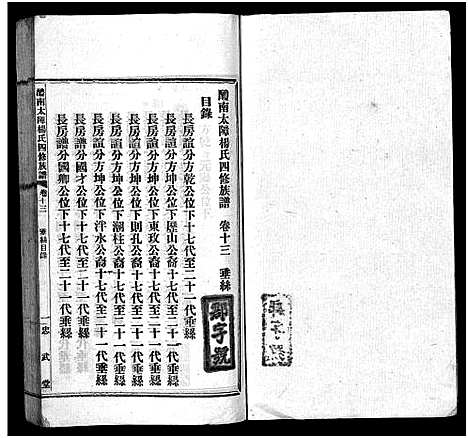 醴南太障楊氏四修族譜　卷十三　垂絲
目錄
長房誼分方乾公位下十七代至二十一代垂絲
長房誼分方坤公位下歷山公裔十七代至二十一代垂絲
長房誼分方坤公位下東玫公裔十七代至二十一代垂絲
長房誼分方坤公位下則孔公裔十七代至二十一代垂絲
長房誼分方坤公位下潮柱公裔十七代至二十一代垂絲
長房誼分方坤公位下泮水公裔十七代至二十一代垂絲
長房譜分國才公位下十七代至二十一代垂絲
長房譜分國卿公位下十七代至二十一代垂絲
鄒字號
醴南太障楊氏四修族譜
卷十三
垂絲目錄
一
忠武堂